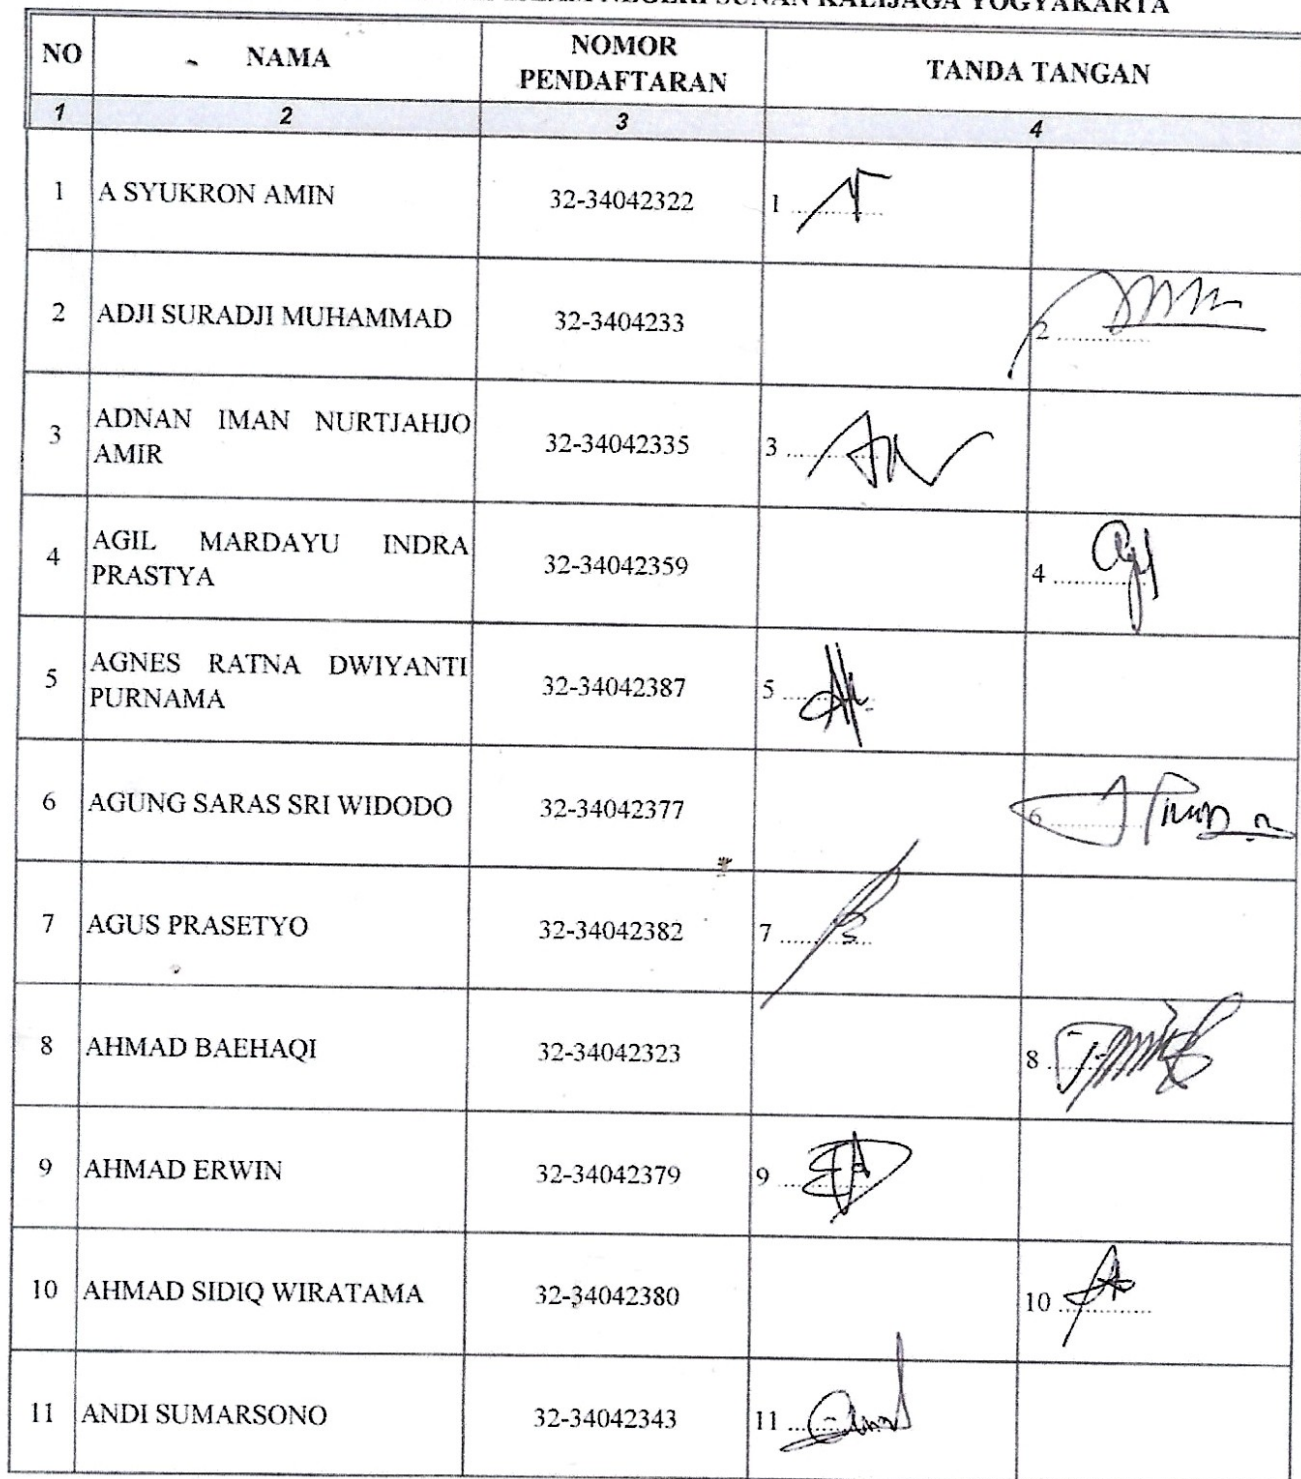 NEGERI SUNAN KALIJAGA YOGYAKARTA
NO NAMA NOMOR PENDAFTARAN TANDA TANGAN
1 2 3 4
1 A SYUKRON AMIN 32-34042322 1 ..............
2 ADJI SURADJI MUHAMMAD 32-3404233 2 ..............
3 ADNAN IMAN NURTJAHJO
AMIR 32-34042335 3 ..............
4 AGIL MARDAYU INDRA
PRASTYA 32-34042359 4 ..............
5 AGNES RATNA DWIYANTI
PURNAMA 32-34042387 5 ..............
6 AGUNG SARAS SRI WIDODO 32-34042377 6 ..............
7 AGUS PRASETYO 32-34042382 7 ..............
8 AHMAD BAEHAQI 32-34042323 8 ..............
9 AHMAD ERWIN 32-34042379 9 ..............
10 AHMAD SIDIQ WIRATAMA 32-34042380 10 ..............
11 ANDI SUMARSONO 32-34042343 11 ..............